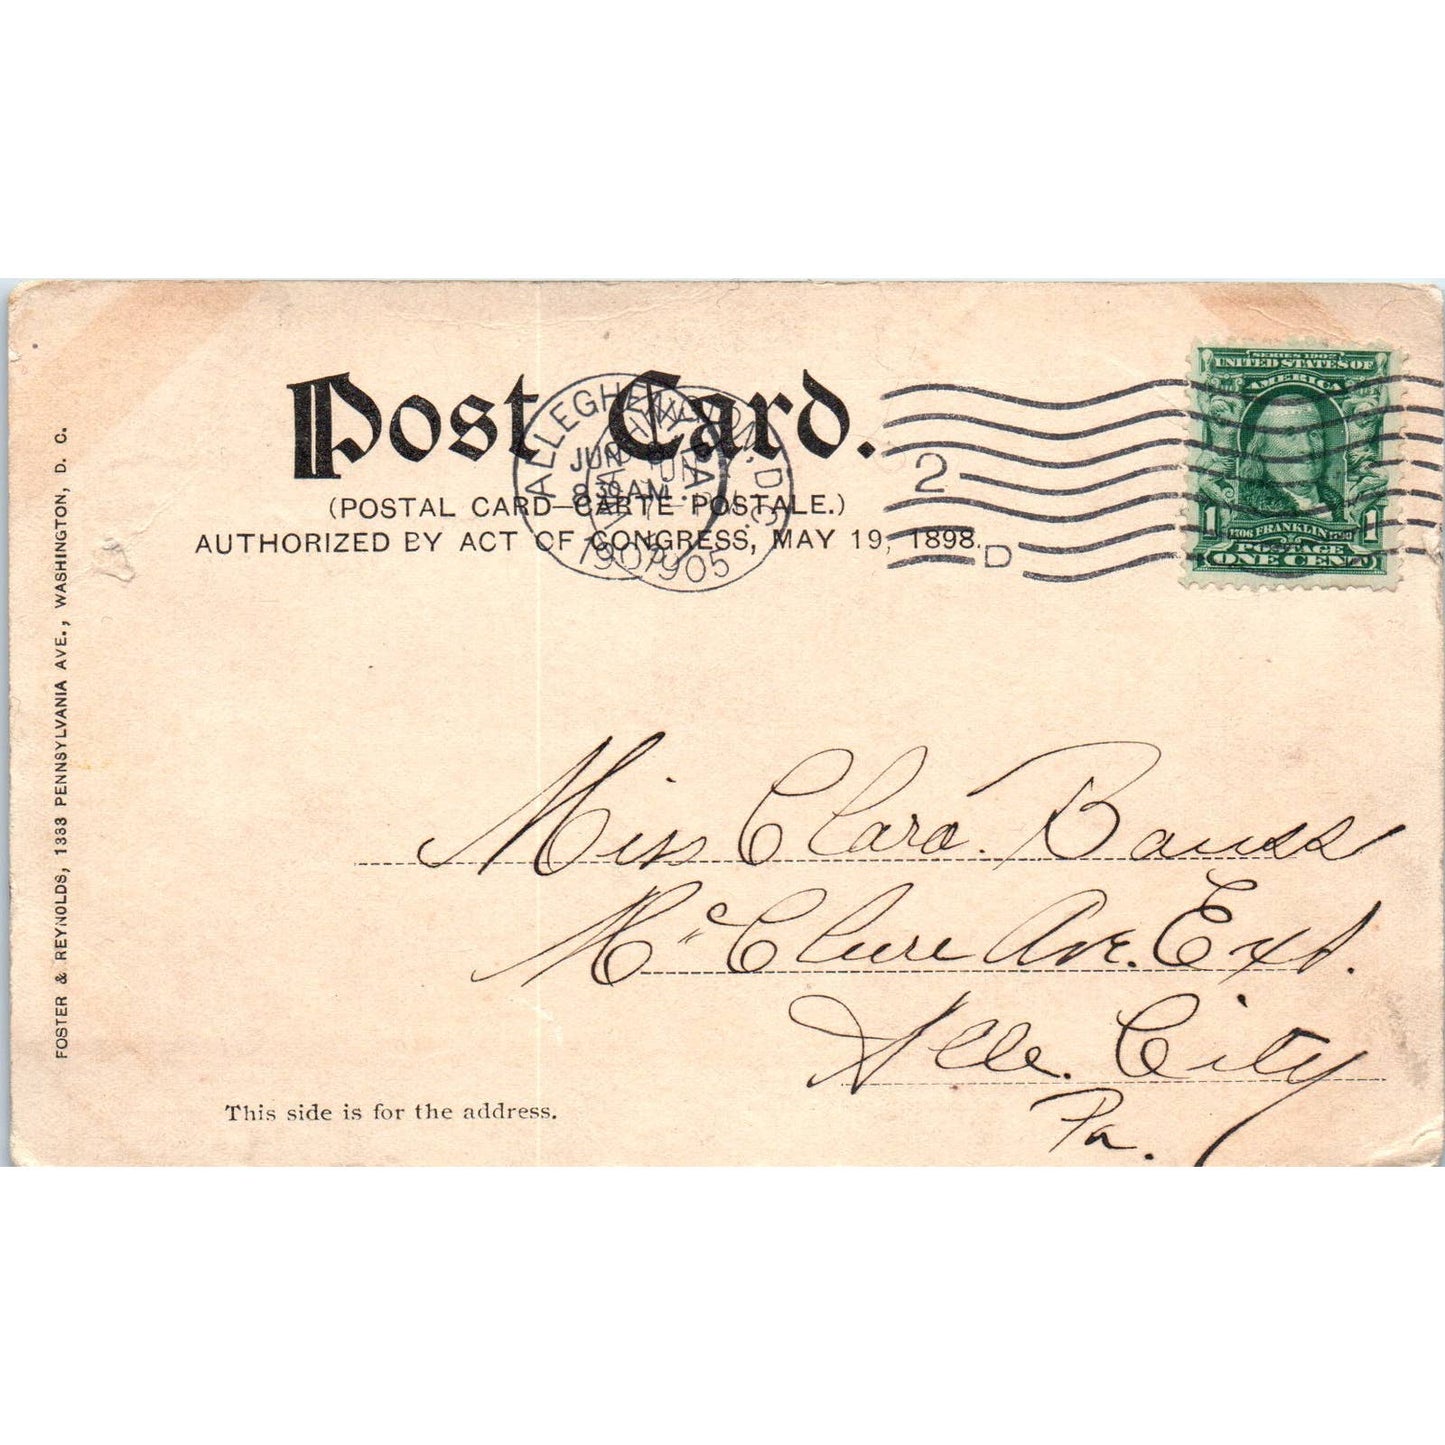 Post Card.
(POSTAL CARD—CARTE POSTALE.)
AUTHORIZED BY ACT OF CONGRESS, MAY 19, 1898.
ALLEGHENY, PA.
JUN
8 30 AM
190
WASHINGTON, D.C.
JUN
1905
2
D
SERIES 1902
UNITED STATES OF
AMERICA
1706 FRANKLIN 1790
POSTAGE
1 ONE CENT 1
FOSTER & REYNOLDS, 1333 PENNSYLVANIA AVE., WASHINGTON, D. C.
Miss Clara. Bauss
McClure Ave. Ext.
Alle. City
Pa.
This side is for the address.